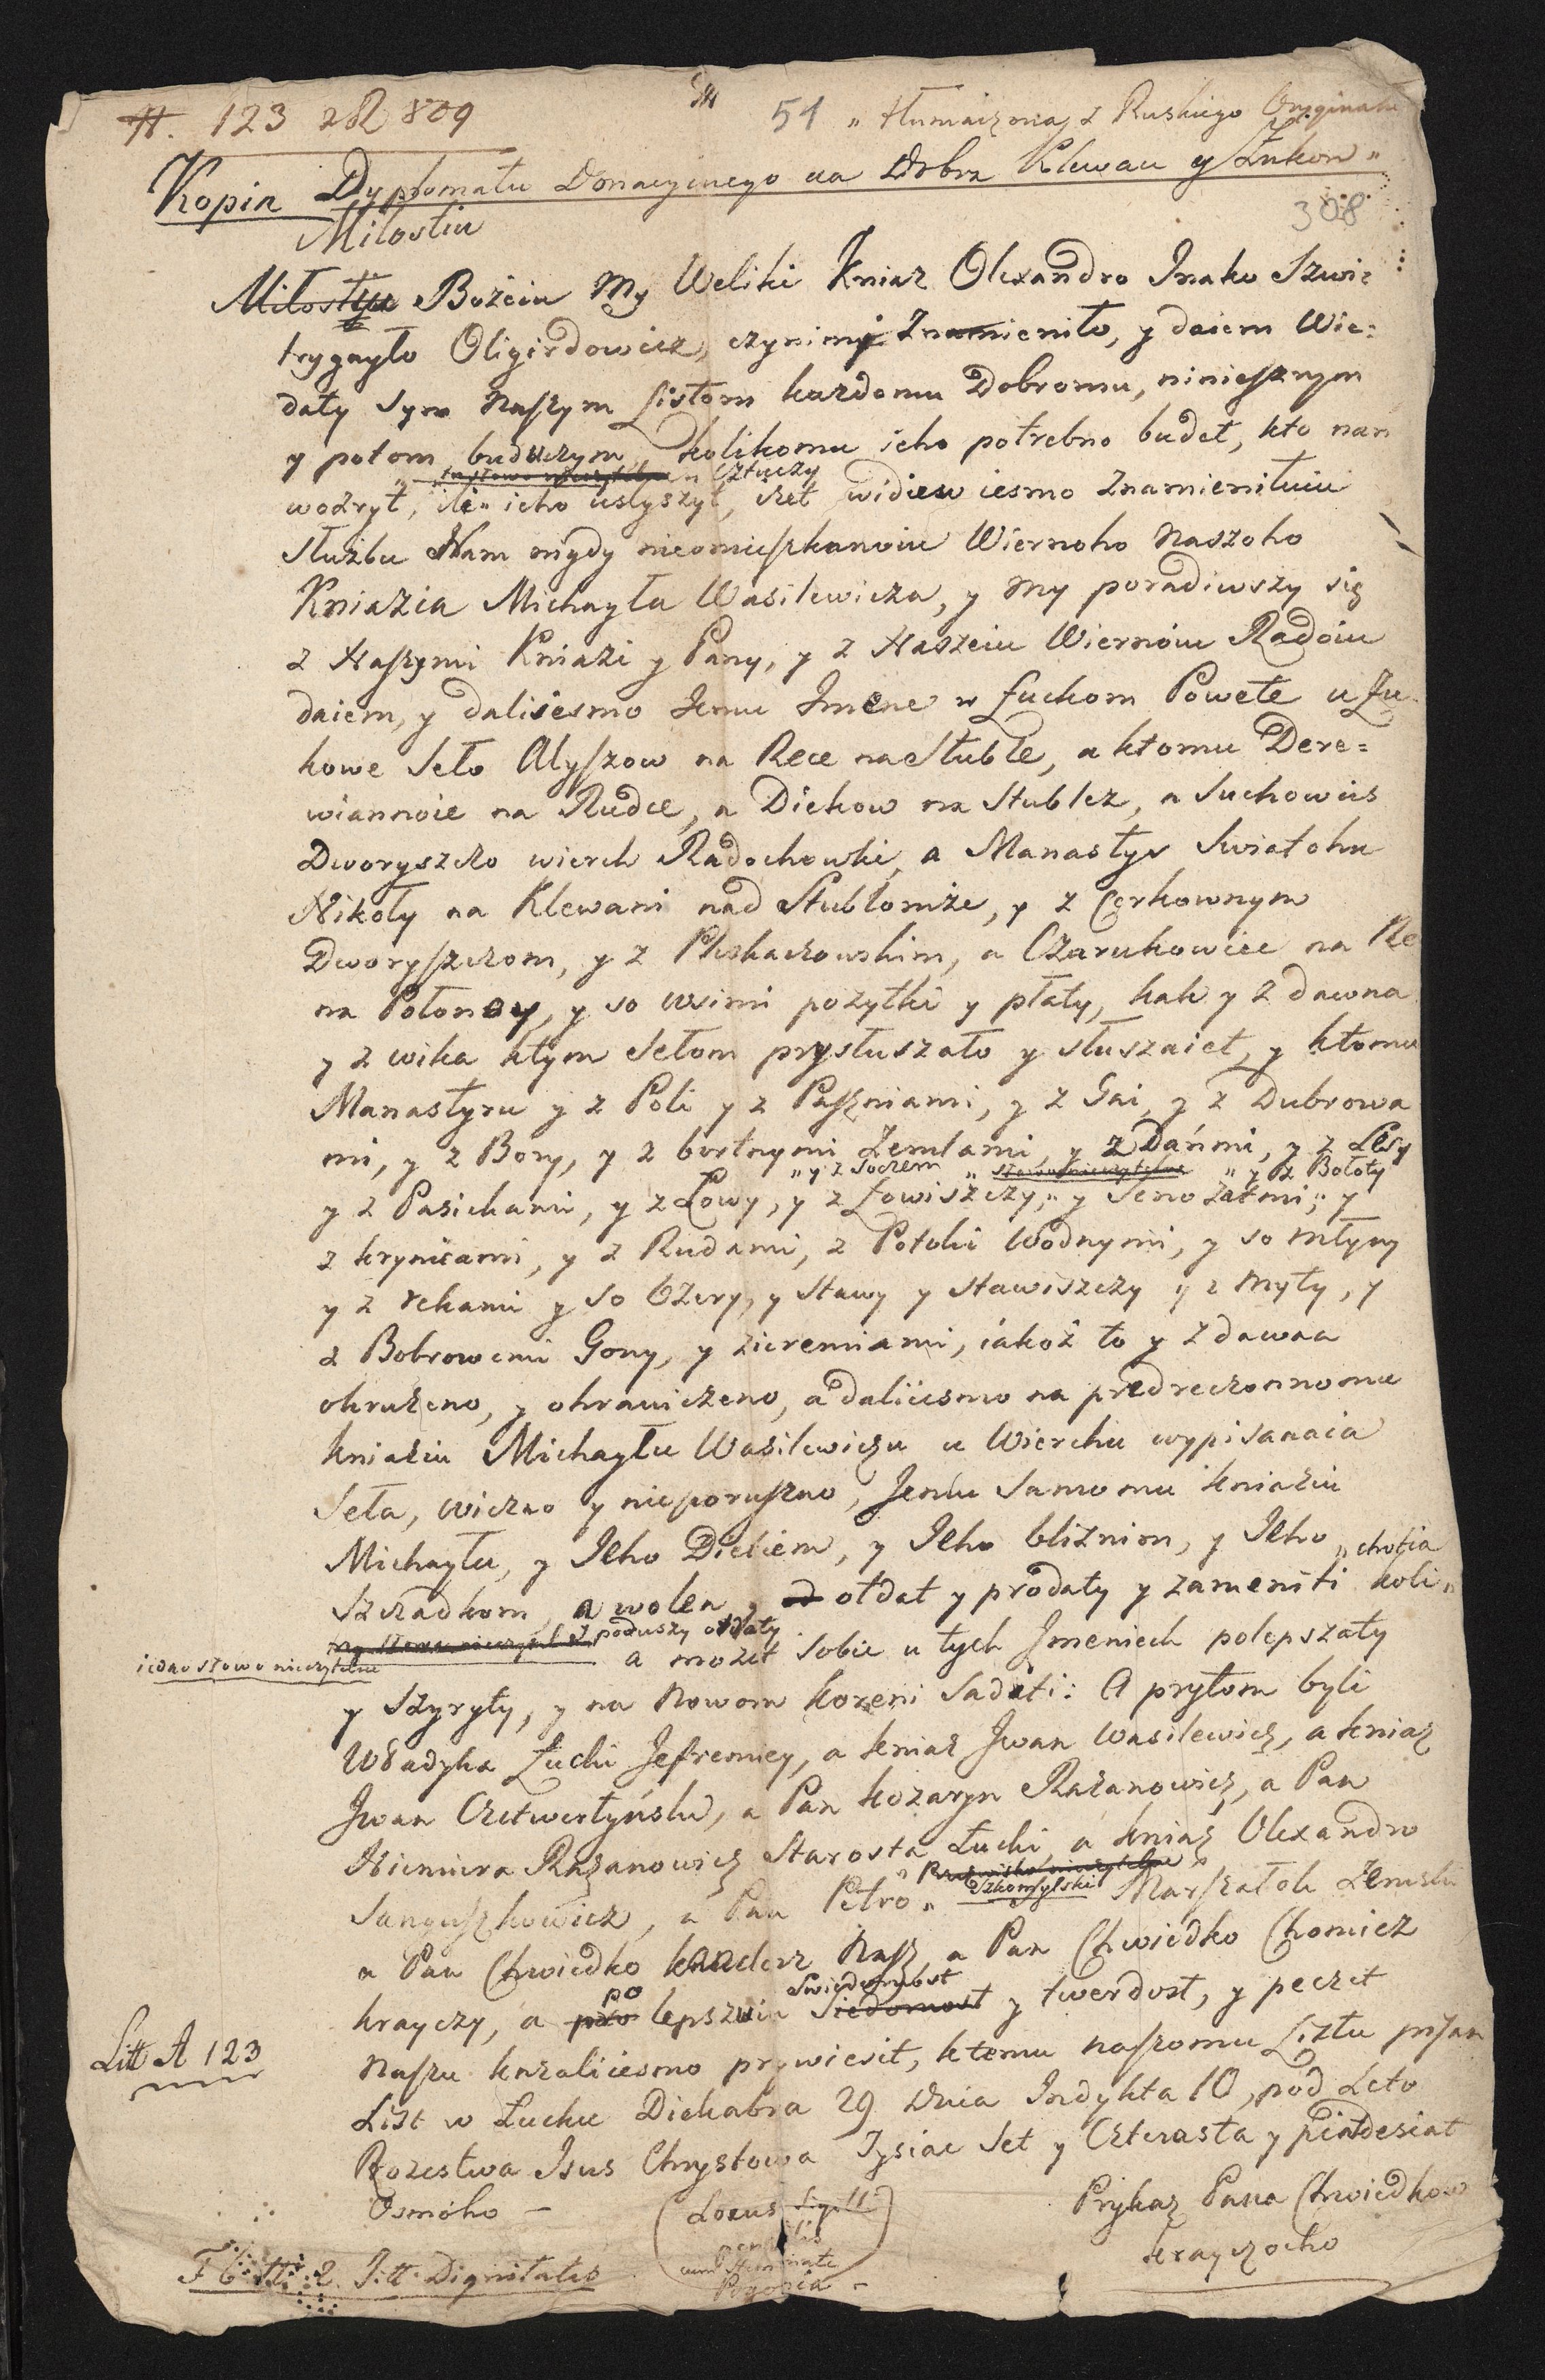 A. 123 z R 809
51 „ tłumaczona z Ruskiego Oryginału
Kopia Dyplomatu Donacyjnego na Dobra Klewań y Żukow „
308
Miłostiu
Miłostyu Bożeiu My Weliki Kniaz Olexandro Inako Szwi=
trygayło Oligirdowicz, czynimy Znamienito, y daiem Wie=
daty Sym Naszym Listom każdomu Dobromu, ninieysznym
y potom buduczym, kolikomu ieho potrebno budet, kto nań
„ to słowo nieczytelne „ Cztuczy
wozryt, ili „ ieho usłyszyt, sżet widiew iesmo Znamienituiu
Służbu Nam nigdy nieomieszkanoiu Wiernoho Naszoho
Kniazia Michayła Wasilewicza, y my poradiwszy się
z Naszymi Kniazi y Pany, y z Naszeiu Wiernoiu Radoiu
daiem, y dalisesmo Jemu Imene w Łuckom Powete u Żu-
kowe Seło Alyszow na Rece na Stuble, a ktomu Dere=
wiannoie na Rudce, a Diekow na Stublez, a Suchowus
Dworyszczo wierch Radochowki, a Manastyr Swiatoho
Nikoły na Klewani nad Stublomże, y z Cerkownym
Dworyszczom, y z Pluskaczowskim, a Czarukowice na Re
na Połonoy, y so wsimi pożytki y płaty, kak y z dawna
y z wika ktym Sełom prysłuszało y słuszaiet, y ktomu
Manastyru y z Poli y z Paszniami, y z Gai, y z Dubrowa
mi, y z Bory, y z bortnymi Zemlami, y z Dańmi, y z Lesy
„ y z Soczem „ słowo nieczytelne „ y z Bołoty
y z Pasiekami, y z Łowy, y z Łowiszczy, „ y Senożatmi, „ y
z krynicami, y z Rudami, z Potoki Wodnymi, y so młyny
y z rekami y so Ozery, y Stawy y stawiszczy y z Myty, y
z Bobrowemi Gony, y zieremiami, iakoż to y z dawna
okrużeno, y ohraniczeno, a daliiesmo na predreczonnomu
kniaziu Michayłu Wasilewiczu u Wierchu wypisanaia
Seła, wiczno y nieporuszno, Jemu Samomu kniaziu
Michayłu, y Jeho Dieciem, y Jeho bliżnim, y Jeho „ chotia
Szczadkom, a wolen y od otdat y prodaty y zameniti koli „
iedno słowo nieczytelne
poduszy otdaty
a możet Sobie u tych Imeniech polepszaty
y Szyryty, y na Nowom koreni Sadyti: A prytom byli
Władyka Łucki Jefremiey, a kniaz Jwan Wasilewicz, a kniaz
Jwan Czetwertyński, a Pan Kozaryn Rażanowicz, a Pan
Niemira Rażanowicz Starosta Łucki, a kniaz Olexandro
„ Przezwisko nieczytelne „
Sanguszkowicz, a Pan Petro „ Marszałok Zemski
a Pan Chwiedko kanclerz Nasz, a Pan Chwiedko Chomicz
po Swiedomost
krayczy, a pro lepszuiu Siedomost y twerdost, y peczet
Naszu kazaliiesmo prywiesit, ktemu naszomu Listu pisan
Litt A 123
List w Łucku Diekabra 29 Dnia Indykta 10, pod Leto
Rożestwa Isus Chrystowa Tysiac Set y Czterasta y piatdesiat
Osmoho –
(Locus Sigilli
cum Stemmate
Pogonia –
Prykaz Pana Chwiedkow
krayczocho
Litt. Dignitatis